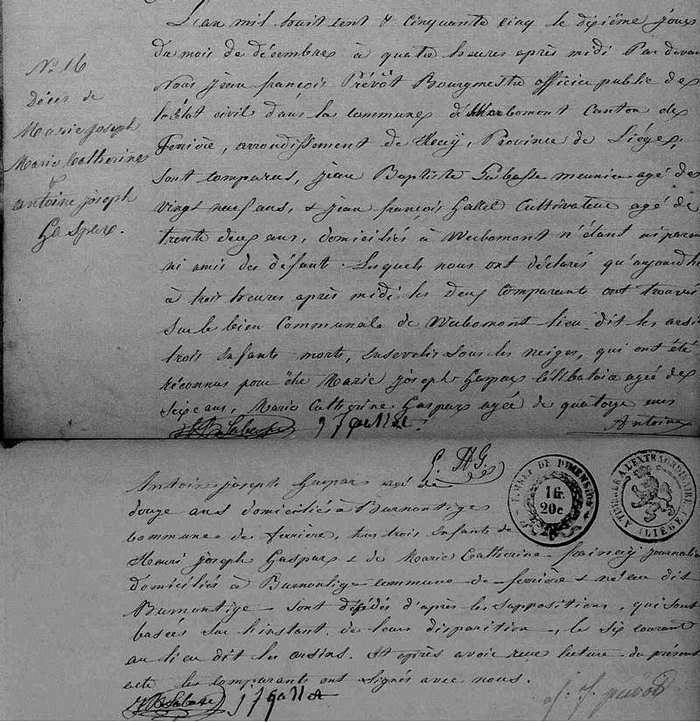 N° 16
Décès de
Marie joseph
Marie Catherine
&
antoine joseph
Gaspar.
L'an mil huit cent & cinquante cinq le dixième jour
du mois de décembre à quatre heures après midi Par devant
Nous jean françois Prévôt Bourgmestre officier public de
l'état civil dans la commune de Werbomont Canton de
ferrière, arrondissement de Huy, Province de Liège,
sont comparus, jean Baptiste meunier agé de
vingt neuf ans, & jean françois Gallet Cultivateur agé de
trente deux ans, domiciliés à Werbomont n'étant ni parent
ni amis des défunt. Lesquels nous ont déclarés qu'aujourd'hui
à trois heures après midi les deux comparants ont trouvés
sur le bien Communale de Werbomont lieu dit les arsin
trois Enfants morts, Ensevelis sous les neiges, qui ont été
réconnus pour être Marie joseph Gaspar Célibataire agée de
Seize ans, Marie Catherine Gaspar agée de quatorze ans
Antoine
Antoine joseph Gaspar agé de
douze ans domiciliés à Burnontige
commune de ferrière, tous trois Enfants de
Henri joseph Gaspar & de Marie Catherine journalier
Domiciliés à Burnontige commune de ferrière & né au dit
Burnontige sont décédés d'après les suppositions, qui sont
basées sur l'instant de leurs disparition, le six courant
au lieu dit les arsins. Et après avoir reçu lecture du présent
acte les comparants ont signés avec nous.
TIMBRE DE DIMENSION
1 fr.
20 c
TIMBRE A L'EXTRAORDINAIRE
(LIÈGE)